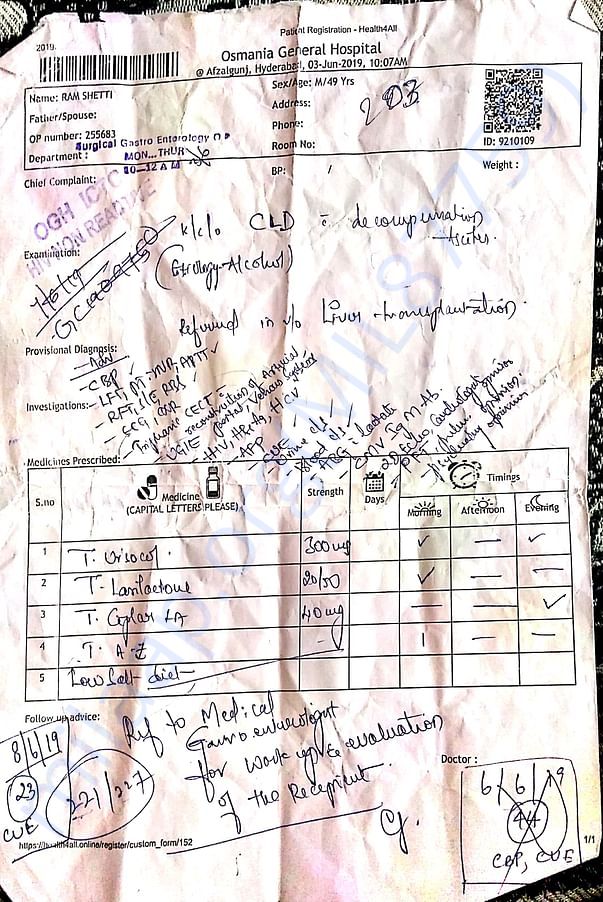 Patient Registration - Health4All
2019.
Osmania General Hospital
@ Afzalgunj, Hyderabad, 03-Jun-2019, 10:07AM
Name: RAM SHETTI
Sex/Age: M/49 Yrs
Father/Spouse:
Address:
203
Phone:
OP number: 255683
Room No:
ID: 9210109
Surgical Gastro Enterology O P
Department :
MON...THUR
10-12 A M
Chief Complaint:
BP: /
Weight :
OGH ICTC
HIV NON REACTIVE
k/c/o CLD c̄ decompensation
- Ascites.
Examination:
(Etiology-Alcohol)
Referred in v/o Liver transplantation.
Provisional Diagnosis:
- CBP
- LFT, PT-INR, APTT
- RFT, S/E, RBS
Investigations:-
- ECG, CXR
- Triphasic CECT c̄ reconstruction of Arterial
portal, Venous system
- UGIE
- HIV, HBsAg, HCV
- AFP
- CUE
- Urine c/s
- Blood c/s
- ABG c̄ lactate
- CMV IgM Ab.
- 2D Echo, cardiologist opinion
- PFT, Pulm. opinion.
- Psychiatry opinion
Medicines Prescribed:
S.no
Medicine
(CAPITAL LETTERS PLEASE)
Strength
Days
Timings
Morning
Afternoon
Evening
1 T. Ursocol. 300mg ✓ — ✓
2 T. Lasilactone 20/50 ✓ — —
3 T. Ceplar LA 40mg — — ✓
4 T. A-Z - | — —
5 Low Salt diet
Follow up advice:
Ref to Medical
Gastroenterologist
for work up & evaluation
of the Recepient.
8/6/19
23
CUE
221/227
Doctor :
6/6/19
44
CBP, CUE
https://health4all.online/register/custom_form/152
1/1
milaap.org